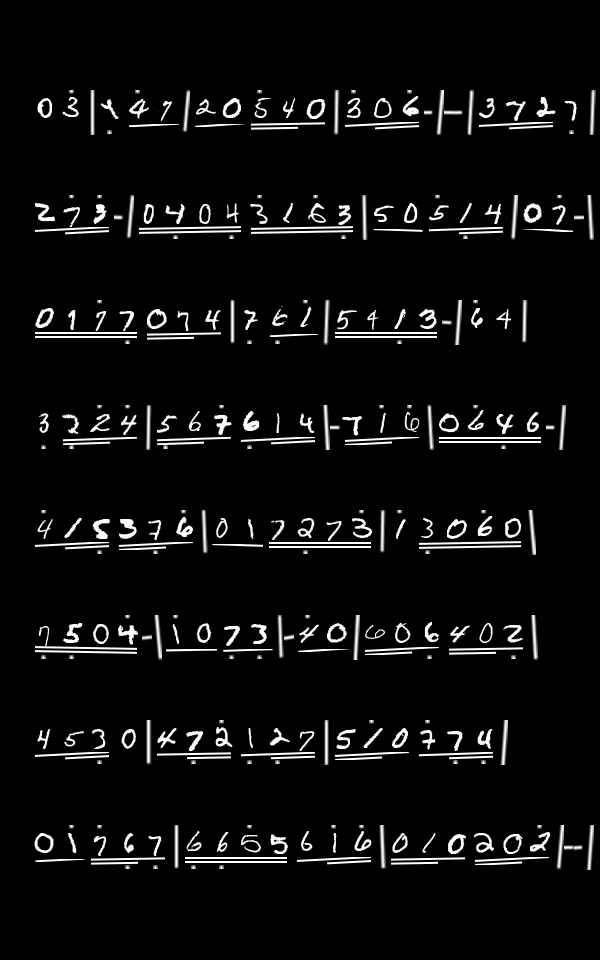 0 3 | 1 4 7 | 2 0 5 4 0 | 3 0 6 - | - | 3 7 2 7 |
2 7 3 - | 0 4 0 4 3 1 6 3 | 5 0 5 1 4 | 0 7 - |
0 1 7 7 0 7 4 | 7 6 1 | 5 4 1 3 - | 6 4 |
3 2 2 4 | 5 6 7 6 1 4 | - 7 1 6 | 0 6 4 6 - |
4 1 5 3 7 6 | 0 1 7 2 7 3 | 1 3 0 6 0 |
7 5 0 4 - | 1 0 7 3 | - 4 0 | 6 0 6 4 0 2 |
4 5 3 0 | 4 7 2 1 2 7 | 5 1 0 7 7 4 |
0 1 7 6 7 | 6 6 5 5 6 1 6 | 0 1 0 2 0 2 | - - |